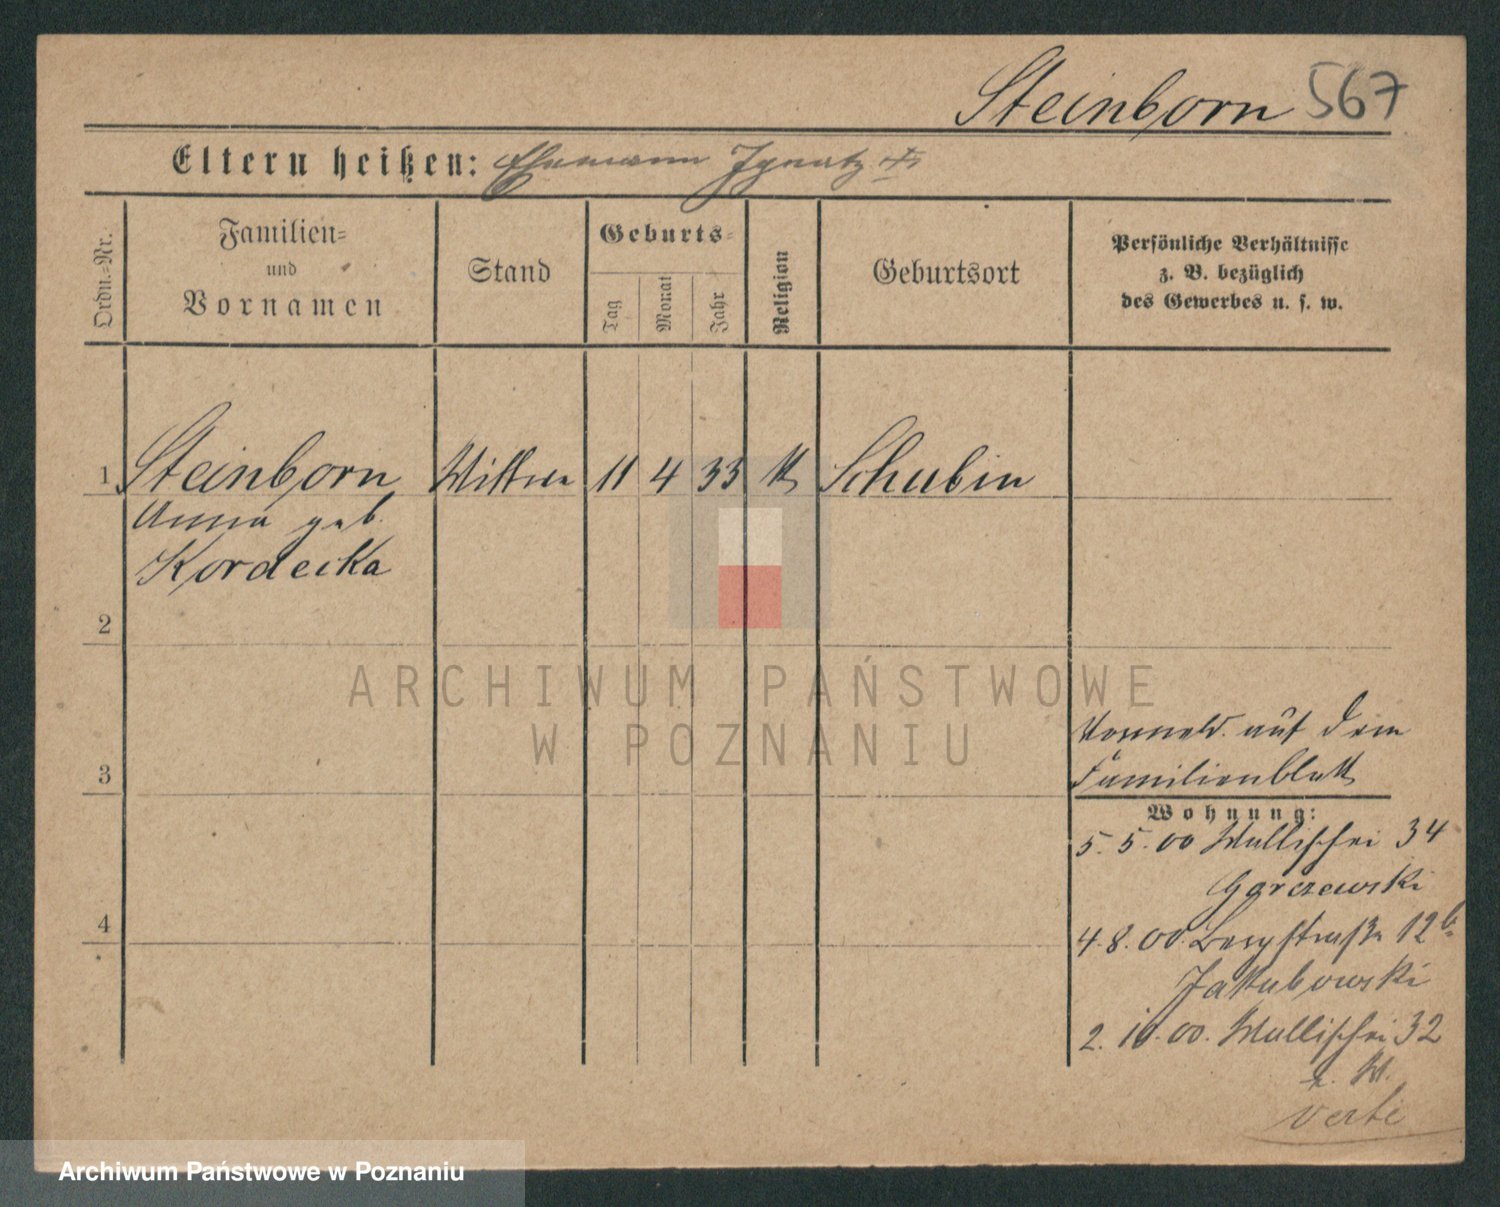 Steinborn 567
Eltern heißen: Ehemann Ignatz
Ordn.=Nr.
Familien=
und
Vornamen
Stand
Geburts=
Tag
Monat
Jahr
Religion
Geburtsort
Persönliche Verhältnisse
z. B. bezüglich
des Gewerbes u. s. w.
1 Steinborn Wittwe 11 4 33 k Schubin
Anna geb.
Kordecka
2
ARCHIWUM PAŃSTWOWE
W POZNANIU
auf dem
3 Familienblatt
Wohnung:
5. 5. 00 Wallischei 34
4 4. 8. 00. Bergstraße 12b
Jakubowski
2. 10. 00. Wallischei 32
z. W.
verte
Archiwum Państwowe w Poznaniu